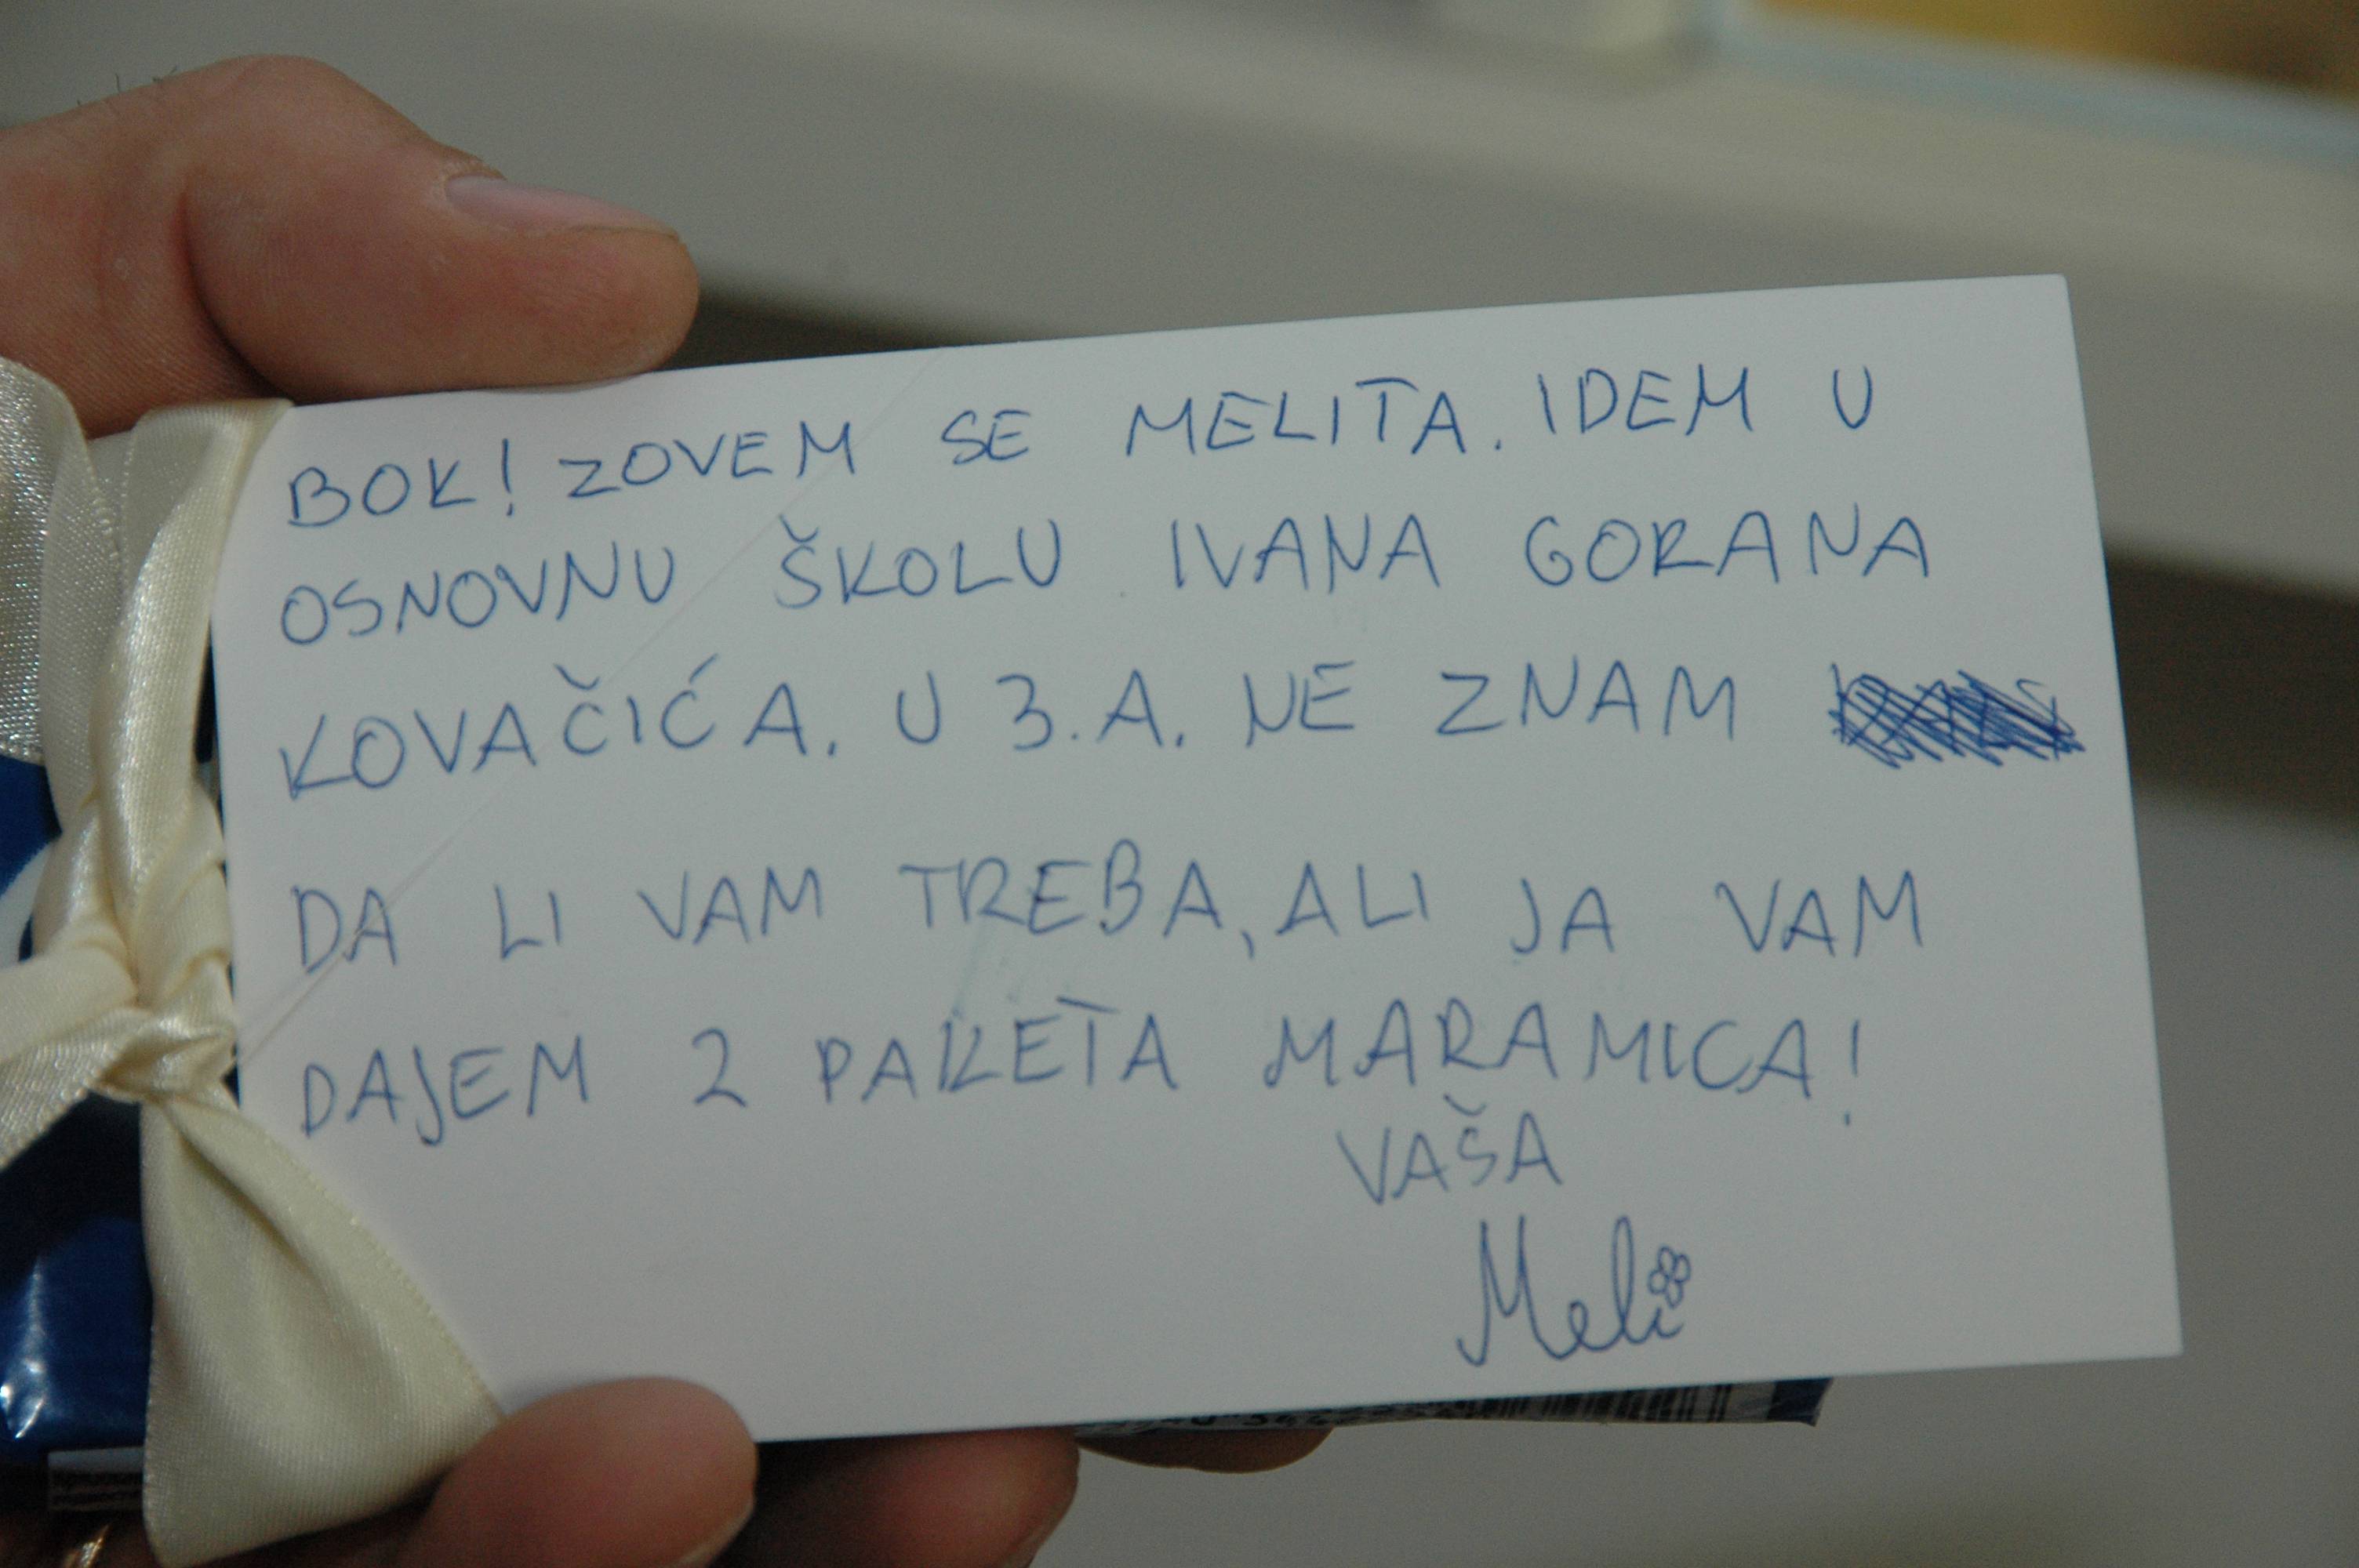 BOK! ZOVEM SE MELITA. IDEM U
OSNOVNU ŠKOLU IVANA GORANA
KOVAČIĆA. U 3.A. NE ZNAM
DA LI VAM TREBA, ALI JA VAM
DAJEM 2 PAKETA MARAMICA!
VAŠA
Meli